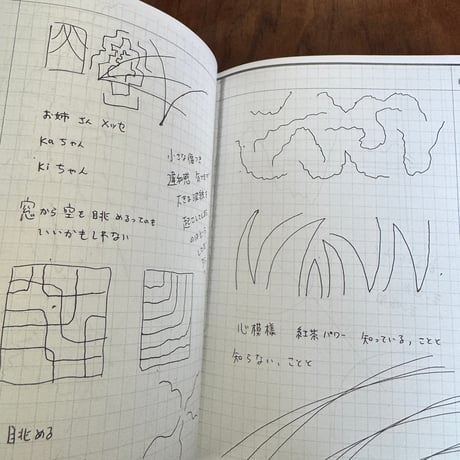 お姉さん メッセ
Kaちゃん
Kiちゃん
小さな傷つき
違和感
大きな波紋を
窓から空を眺めるってのも
いいかもしれない
眺める
心模様 紅茶パワー 知っている，ことと
知らない，ことと